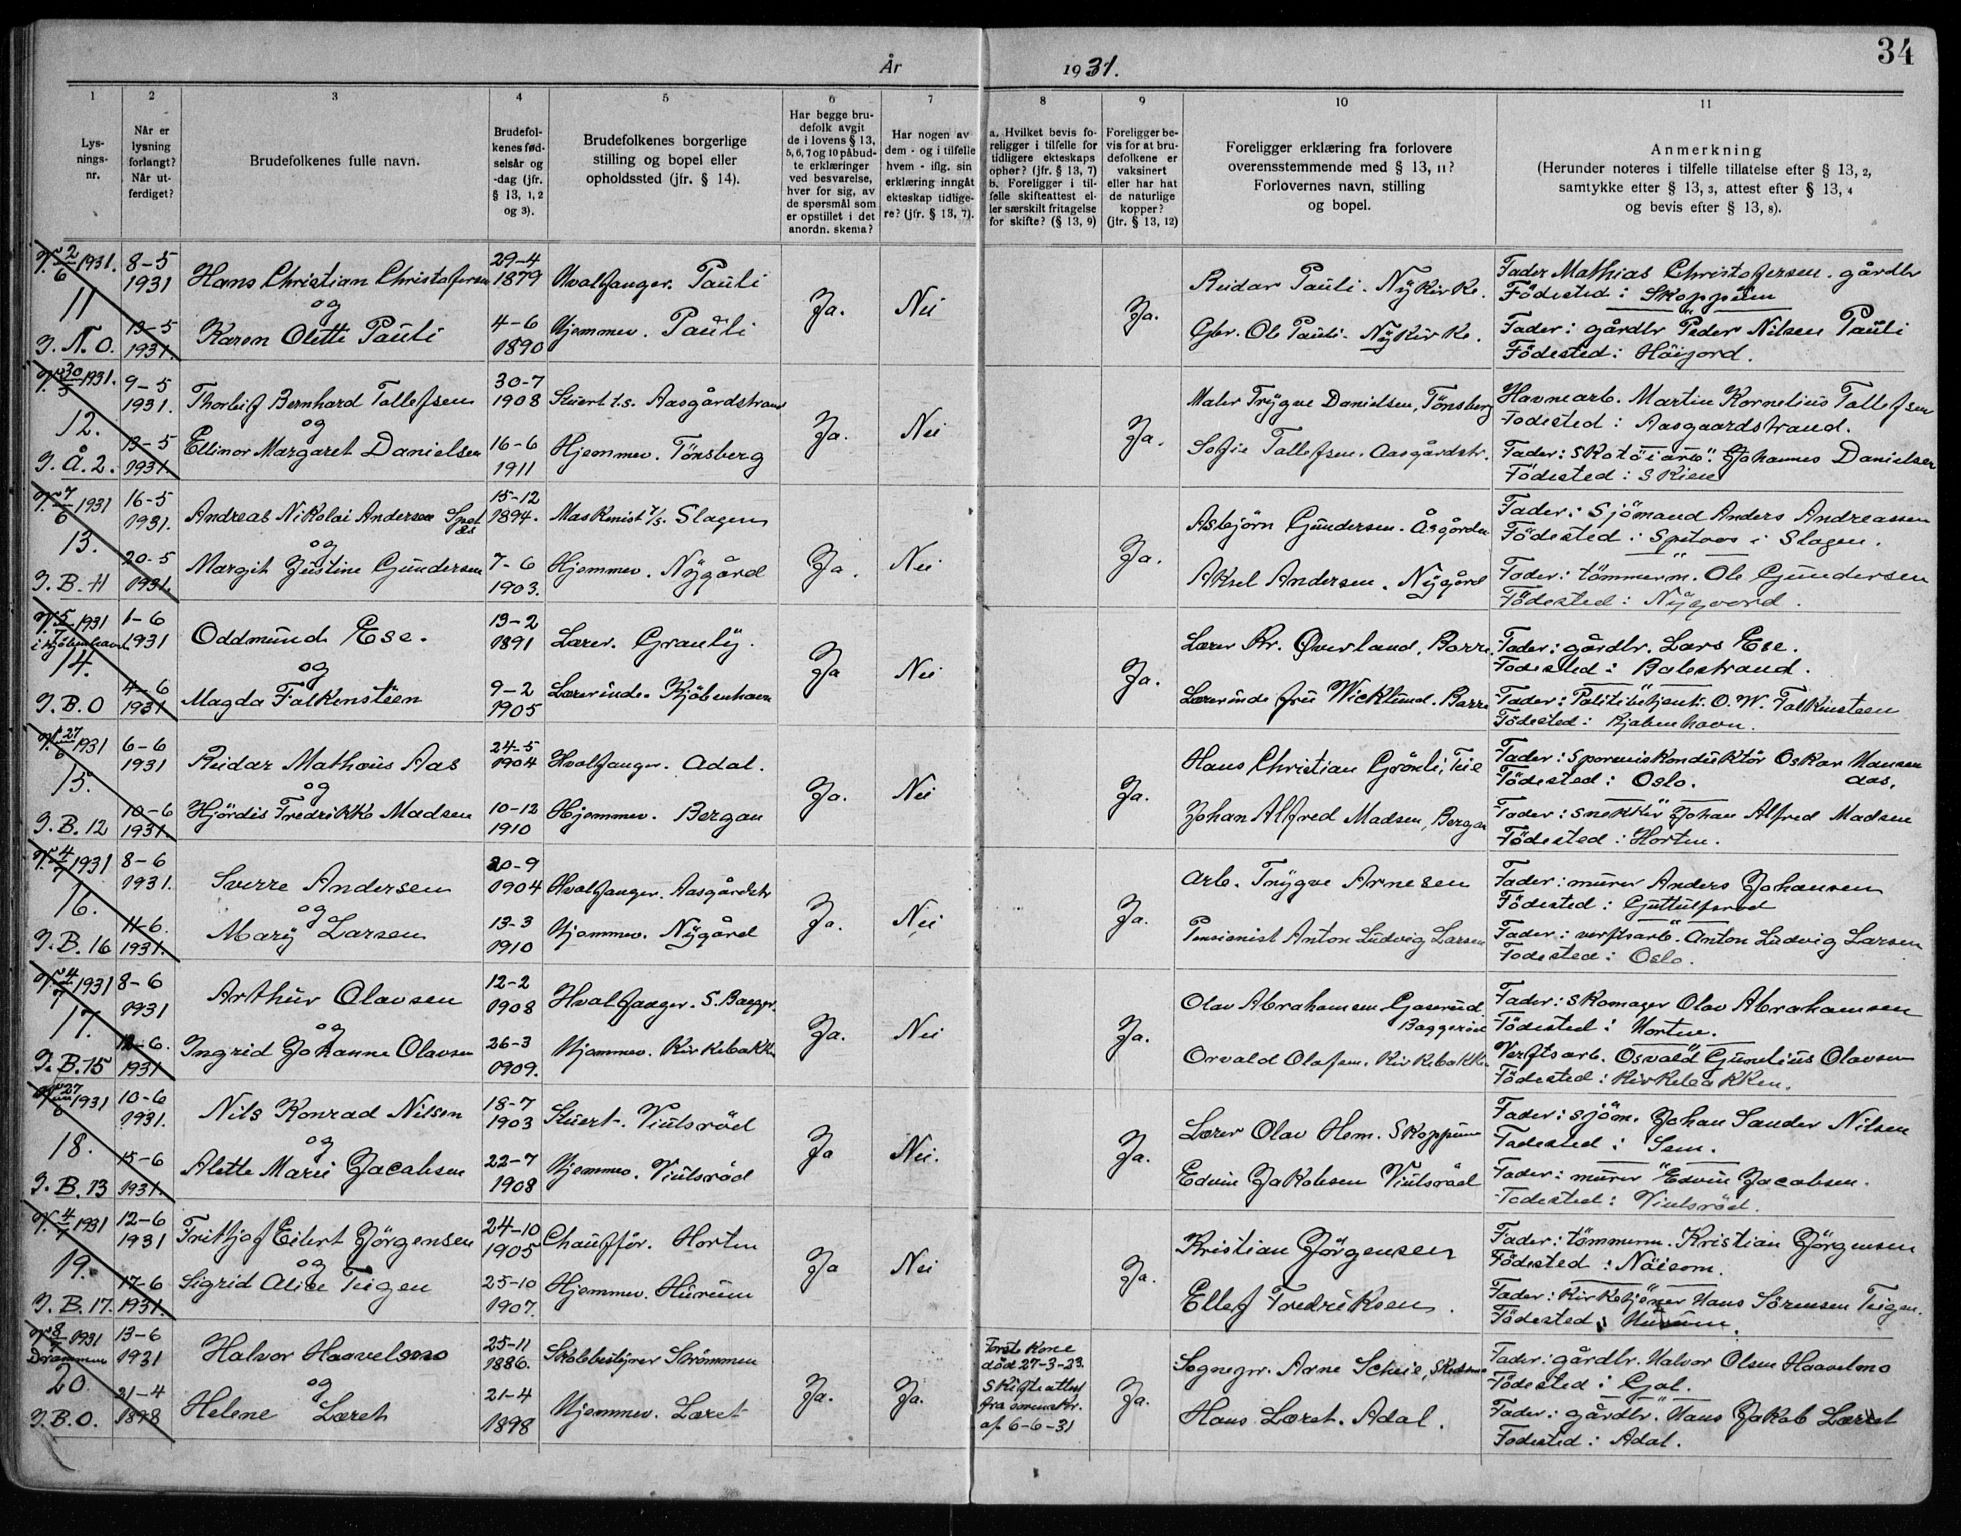 34
År 1931.
1 2 3 4 5 6 7 8 9 10 11
Lys-
nings-
nr.
Når er
lysning
forlangt?
Når ut-
ferdiget?
Brudefolkenes fulle navn.
Brudefol-
kenes fød-
selsår og
-dag (jfr.
§ 13, 1, 2
og 3).
Brudefolkenes borgerlige
stilling og bopel eller
opholdssted (jfr. § 14).
Har begge bru-
defolk avgit
de i lovens § 13,
5, 6, 7 og 10 påbud-
te erklæringer
ved besvarelse,
hver for sig, av
de spørsmål som
er opstillet i det
anordn. skema?
Har nogen av
dem - og i tilfelle
hvem - iflg. sin
erklæring inngåt
ekteskap tidlige-
re? (jfr. § 13, 7).
a. Hvilket bevis fo-
religger i tilfelle for
tidligere ekteskaps
ophør? (jfr. § 13, 7)
b. Foreligger i til-
felle skifteattest el-
ler særskilt fritagelse
for skifte? (§ 13, 9)
Foreligger be-
vis for at bru-
defolkene er
vaksinert
eller har hat
de naturlige
kopper?
(jfr. § 13, 12)
Foreligger erklæring fra forlovere
overensstemmende med § 13, 11?
Forlovernes navn, stilling
og bopel.
Anmerkning
(Herunder noteres i tilfelle tillatelse efter § 13, 2,
samtykke etter § 13, 3, attest efter § 13, 4
og bevis efter § 13, 8).
V. 2/6 1931.
11
J. N. O.
8-5
1931
13-5
1931.
Hans Christian Christofersen
og
Karen Olette Pauli
29-4
1879
4-6
1890
Hvalfanger. Pauli
Hjemmev. Pauli
Ja.
Nei
Ja.
Reidar Pauli. Nykirke.
Gbr. Ole Pauli. Nykirke.
Fader Mathias Christofersen. gårdbr
Födested: Skoppum
Fader: gårdbr Peder Nilsen Pauli
Födested: Höijord.
V. 30/5 1931.
12.
J. Å. 2.
9-5
1931.
13-5
1931.
Thorleif Bernhard Tollefsen
og
Ellinor Margaret Danielsen
30-7
1908
16-6
1911
Stuert t.s. Aasgårdstrand
Hjemmev. Tönsberg
Ja.
Nei
Ja.
Maler Trygve Danielsen, Tönsberg
Sofie Tollefsen. Aasgårdstr.
Havnearb. Martin Kornelius Tollefsen
Födested: Aasgaardstrand.
Fader: Skotöiarb. Johannes Danielsen
Födested: Skien
V. 7/6 1931
13.
J. B. 11
16-5
1931.
20-5
1931.
Andreas Nikolai Andersen
og
Margit Justine Gundersen
15-12
1894.
7-6
1903.
Maskinist t/s. Slagen
Hjemmev. Nygård
Ja.
Nei
Ja.
Asbjörn Gundersen. Åsgården
Aksel Andersen. Nygård
Fader: Sjömand Anders Andreassen
Födested: i Slagen.
Fader: tömmerm. Ole Gundersen
Födested: Nygaard.
V. 5/7 1931
i Kjöbenhavn
14.
J. B. O
1-6
1931
4-6
1931
Oddmund Ese.
og
Magda Falkensteen
13-2
1891
9-2
1905
Lærer. Granly.
Lærerinde. Kjöbenhavn
Ja
Nei
Ja.
Lærer Kr. Øverland, Borre
Lærerinde fru Wicklund. Borre
Fader: gårdbr. Lars Ese.
Födested: Balestrand.
Fader: Politibetjent. O. W. Falkensteen
Födested: Kjøbenhavn.
V. 27/6 1931
15.
J. B. 12
6-6
1931
10-6
1931.
Reidar Mathæus Aas
og
Hjördis Fredrikke Madsen
24-5
1904
10-12
1910
Hvalfanger. Adal.
Hjemmev. Bergan
Ja.
Nei
Ja.
Hans Christian Grönli, Teie
Johan Alfred Madsen, Bergan
Fader: Sporveiskonduktör Oskar Hansen
Aas.
Födested: Oslo.
Fader: snekker Johan Alfred Madsen
Födested: Horten.
V. 4/7 1931
16.
J. B. 16
8-6
1931.
11-6.
1931.
Sverre Andersen
og
Mary Larsen
20-9
1904
13-3
1910
Hvalfanger. Aasgårdstr
Hjemmev. Nygård
Ja.
Nei
Ja.
Arb. Trygve Arnesen
Pensionist Anton Ludvig Larsen
Fader: murer Anders Johansen
Födested: Guttulfsrød
Fader: verftsarb. Anton Ludvig Larsen
Födested: Oslo.
V. 4/7 1931
17.
J. B. 15
8-6
1931
12-6.
1931
Arthur Olavsen
og
Ingrid Johanne Olavsen
12-2
1908
26-3
1909.
Hvalfanger. S. Bagger.
Hjemmev. Kirkebakken
Ja.
Nei
Ja.
Olav Abrahamsen Gaserud
Baggeröd
Osvald Olafsen. Kirkebakken
Fader: Skomager Olav Abrahamsen
Födested: Horten.
Verftsarb. Osvald Gunelius Olavsen
Födested: Kirkebakken.
V. 27/6 1931
18.
J. B. 13
10-6
1931.
15-6
1931.
Nils Konrad Nilsen
og
Alette Marie Jacobsen
18-7
1903
22-7
1908
Stuert. Viulsröd
Hjemmev. Viulsröd
Ja
Nei.
Ja.
Lærer Olav Hem. Skoppum
Edvin Jakobsen Viulsröd
Fader: sjöm. Johan Sander Nilsen
Födested: Sem.
Fader: murer Edvin Jacobsen.
Födested: Viulsröd.
V. 4/7 1931
19.
J. B. 17.
12-6
1931
17-6
1931.
Fritjof Eilert Jörgensen
og
Sigrid Alice Teigen
24-10
1905
25-10
1907.
Chauffør. Horten
Hjemmev. Hurum
Ja
Nei
Ja.
Kristian Jörgensen
Ellef Fredriksen.
Fader: tömmerm. Kristian Jörgensen
Födested: Näisom.
Fader: Kirketjener Hans Sörensen Teigen.
Födested: Hurum.
V. 8/7 1931
Drammen
20
J. B. O.
13-6
1931
21-4
1898
Halvor Haavelmo
og
Helene Løret
25-11
1886.
21-4
1898
Skolebestyrer Strömmen
Hjemmev. Løret
Ja.
Ja.
Förste Kone
död 27-3-23.
Skifteattest
fra
af 6-6-31
Ja.
Sognepr. Arne Scheie,
Hans Løret. Adal.
Fader: gårdbr. Halvor Olsen Haavelmo
Födested: Gol.
Fader: gårdbr. Hans Jakob Løret
Födested: Adal.